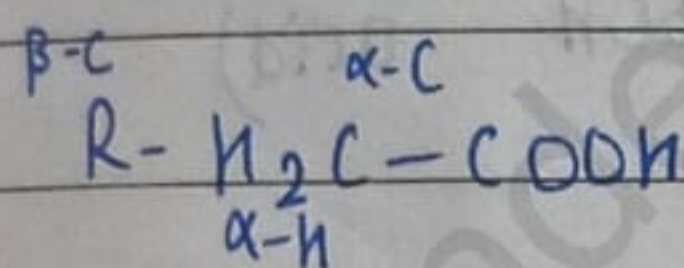 β-C α-C
R- H₂C-COOH
α-H